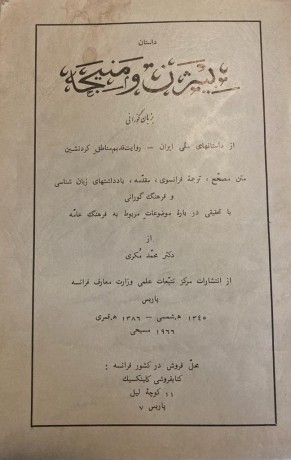 داستان
بیژن و منیجه
بزبان گورانی
از داستانهای ملی ایران – روایت قدیم مناطق کردنشین
متن مصحّح ، ترجمهٔ فرانسوی ، مقدّمه ، یادداشتهای زبان شناسی
و فرهنگ گورانی
با تحقیقی در بارهٔ موضوعات مربوط به فرهنگ عامّه
از
دکتر محمّد مُکری
از انتشارات مرکز تتبّعات علمی وزارت معارف فرانسه
پاریس
۱۳٤۵ ه.شمسی – ۱۳۸۶ ه.قمری
۱۹۶۶ مسیحی
محلّ فروش در کشور فرانسه :
کتابفروشی کلینکسیک
۱۱ کوچهٔ لیل
پاریس ۷